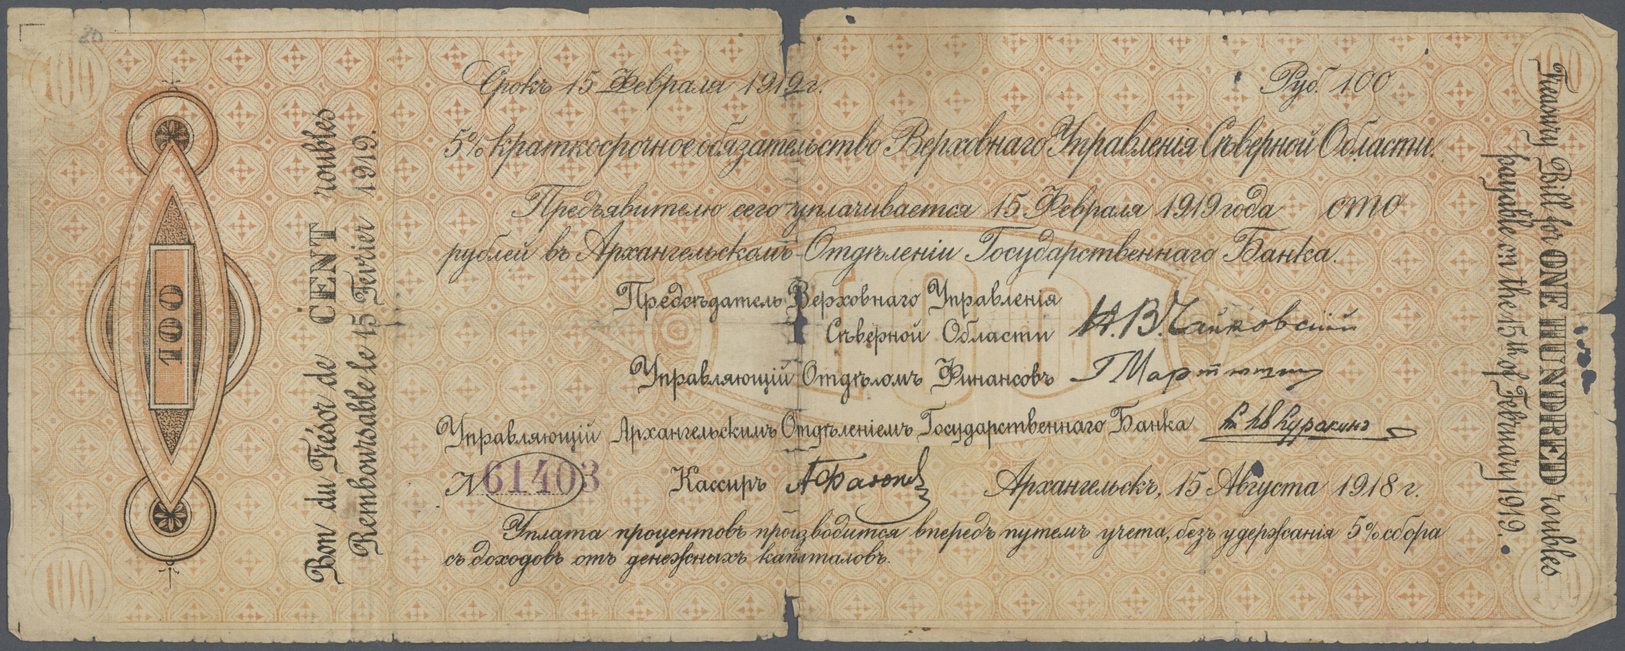 20
100
100
Bon du Trésor de CENT roubles
Remboursable le 15 Fevrier 1919.
Срокъ 15 Февраля 1919 г.
Руб. 100
5% краткосрочное обязательство Верховнаго Управленія Сѣверной Области.
Предъявителю сего уплачивается 15 Февраля 1919 года сто
рублей въ Архангельскомъ Отдѣленіи Государственнаго Банка.
100
Предсѣдатель Верховнаго Управленія
Сѣверной Области Н.В. Чайковскій
Управляющій Отдѣломъ Финансовъ
Управляющій Архангельскимъ Отдѣленіемъ Государственнаго Банка
№ 61403
Кассиръ
Архангельскъ, 15 Августа 1918 г.
Уплата процентовъ производится впередъ путемъ учета, безъ удержанія 5% сбора
съ доходовъ отъ денежныхъ капиталовъ.
100
100
Treasury Bill for ONE HUNDRED roubles
payable on the 15th of February 1919.
100